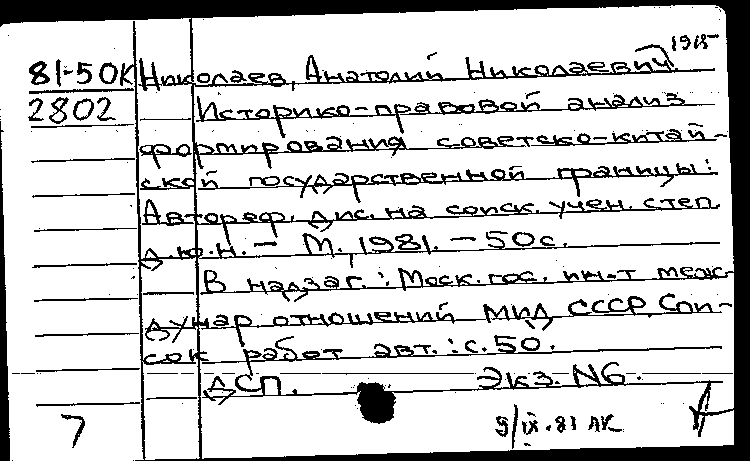 1915
81-50К Николаев, Анатолий Николаевич.
2802 Историко-правовой анализ
формирования советско-китай-
ской государственной границы:
Автореф. дис. на соиск. учен. степ.
д.ю.н. – М., 1981. – 50с.
В надзаг.: Моск. гос. ин-т меж-
дунар. отношений МИД СССР. Спи-
сок работ авт.: с. 50.
ДСП. Экз. N6.
7 9/IX.81 АК